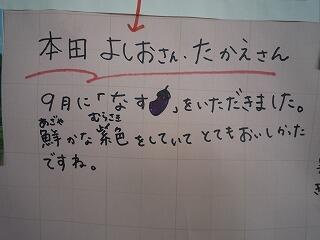 本田 よしおさん、たかえさん
9月に「なす」をいただきました。
あざや むらさき
鮮かな紫色をしていて とてもおいしかった
ですね。